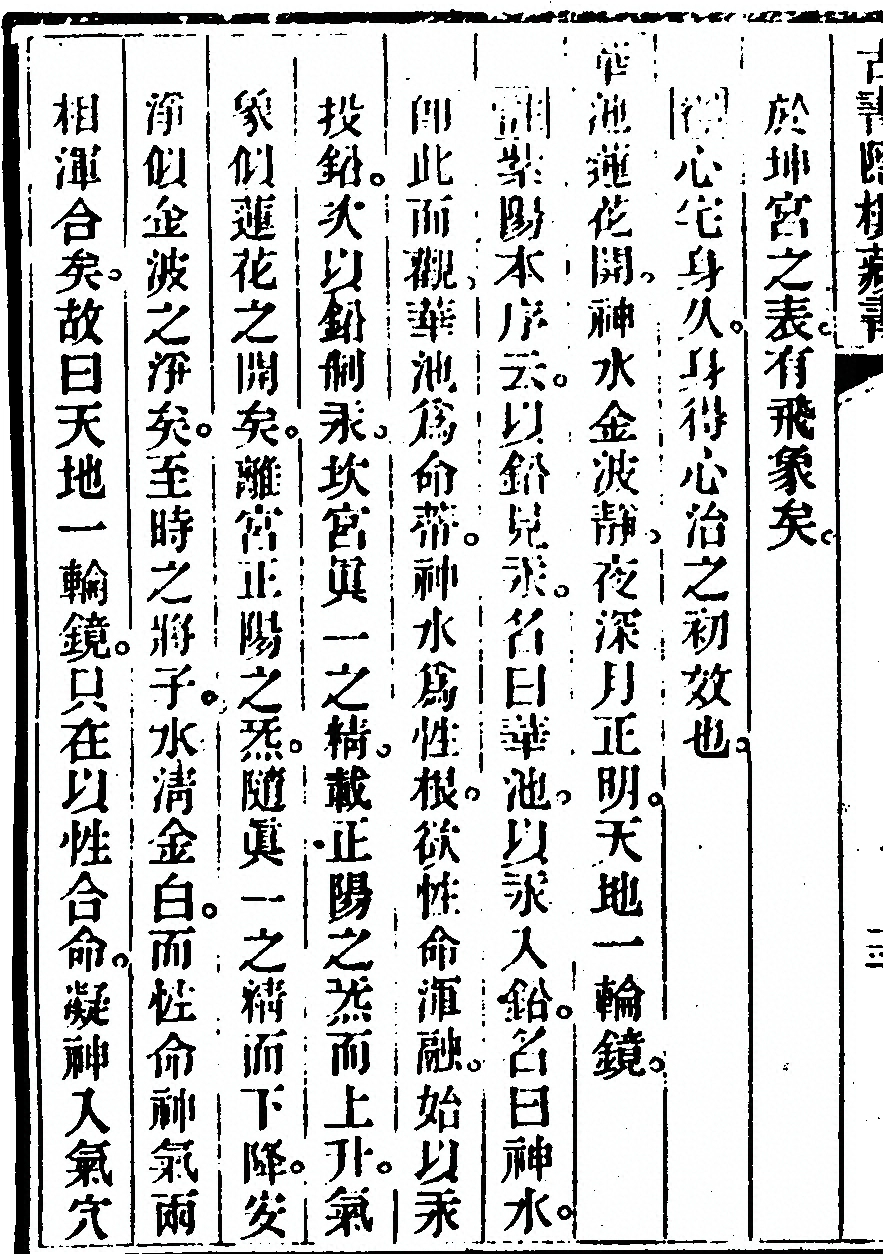 古書隱樓藏書
三
於坤宮之表。有飛象矣。
心宅身久。身得心治之初效也。
華池蓮花開。神水金波靜。夜深月正明。天地一輪鏡。
註紫陽本序云。以鉛見汞。名曰華池。以汞入鉛。名曰神水。
卽此而觀。華池爲命蒂。神水爲性根。欲性命渾融。始以汞
投鉛。次以鉛制汞。坎宮眞一之精。載正陽之炁而上升。氣
象似蓮花之開矣。離宮正陽之炁。隨眞一之精而下降。安
淨似金波之淨矣。至時之將子。水淸金白。而性命神氣兩
相渾合矣。故曰天地一輪鏡。只在以性合命。凝神入氣穴